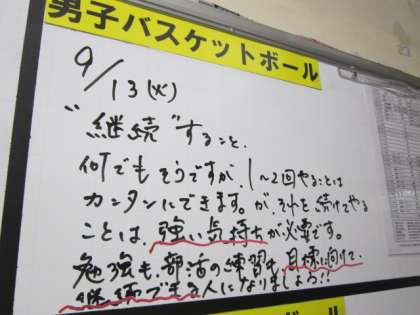 男子バスケットボール
9/13(火)
"継続"すること。
何でもそうですが、1~2回やることは
カンタンにできます。が、それを続けてやる
ことは、強い気持ちが必要です。
勉強も、部活の練習も、目標に向けて、
継続できる人になりましょう!!